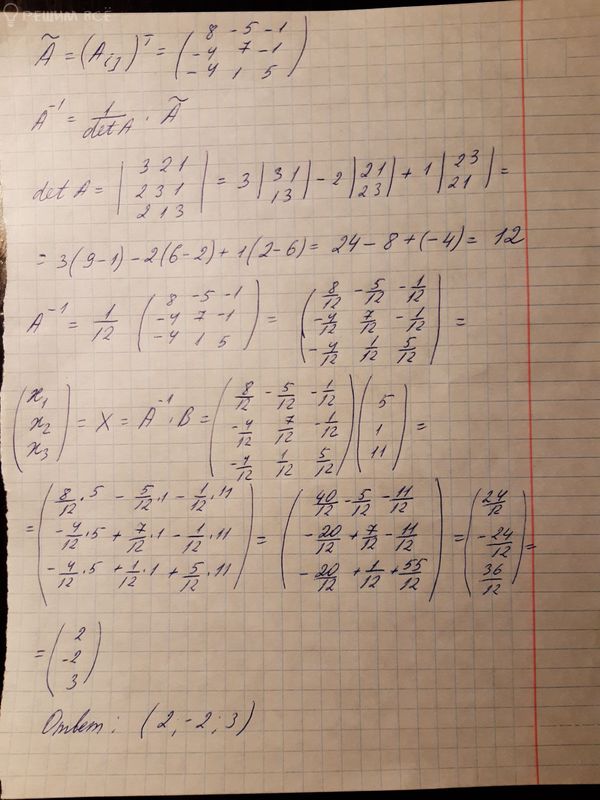 РЕШИМ ВСЁ
Ã = (A_{ij})^T = (8 -5 -1
-4 7 -1
-4 1 5)
A^{-1} = 1/detA · Ã
det A = |3 2 1
2 3 1
2 1 3| = 3 |3 1
1 3| - 2 |2 1
2 3| + 1 |2 3
2 1| =
= 3(9-1) - 2(6-2) + 1(2-6) = 24 - 8 + (-4) = 12
A^{-1} = 1/12 (8 -5 -1
-4 7 -1
-4 1 5) = (8/12 -5/12 -1/12
-4/12 7/12 -1/12
-4/12 1/12 5/12) =
(x₁
x₂
x₃) = X = A^{-1} · B = (8/12 -5/12 -1/12
-4/12 7/12 -1/12
-4/12 1/12 5/12) (5
1
11) =
= (8/12·5 - 5/12·1 - 1/12·11
-4/12·5 + 7/12·1 - 1/12·11
-4/12·5 + 1/12·1 + 5/12·11) = (40/12 - 5/12 - 11/12
-20/12 + 7/12 - 11/12
-20/12 + 1/12 + 55/12) = (24/12
-24/12
36/12) =
= (2
-2
3)
Ответ: (2; -2; 3)